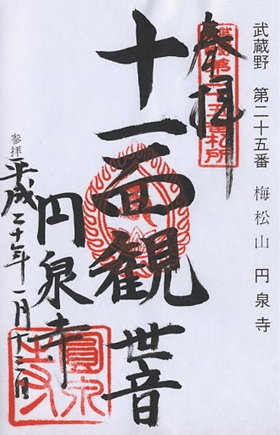 武蔵野 第二十五番 梅松山 円泉寺
奉拝
十一面観世音
円泉寺
参拝
平成二十年一月十三日